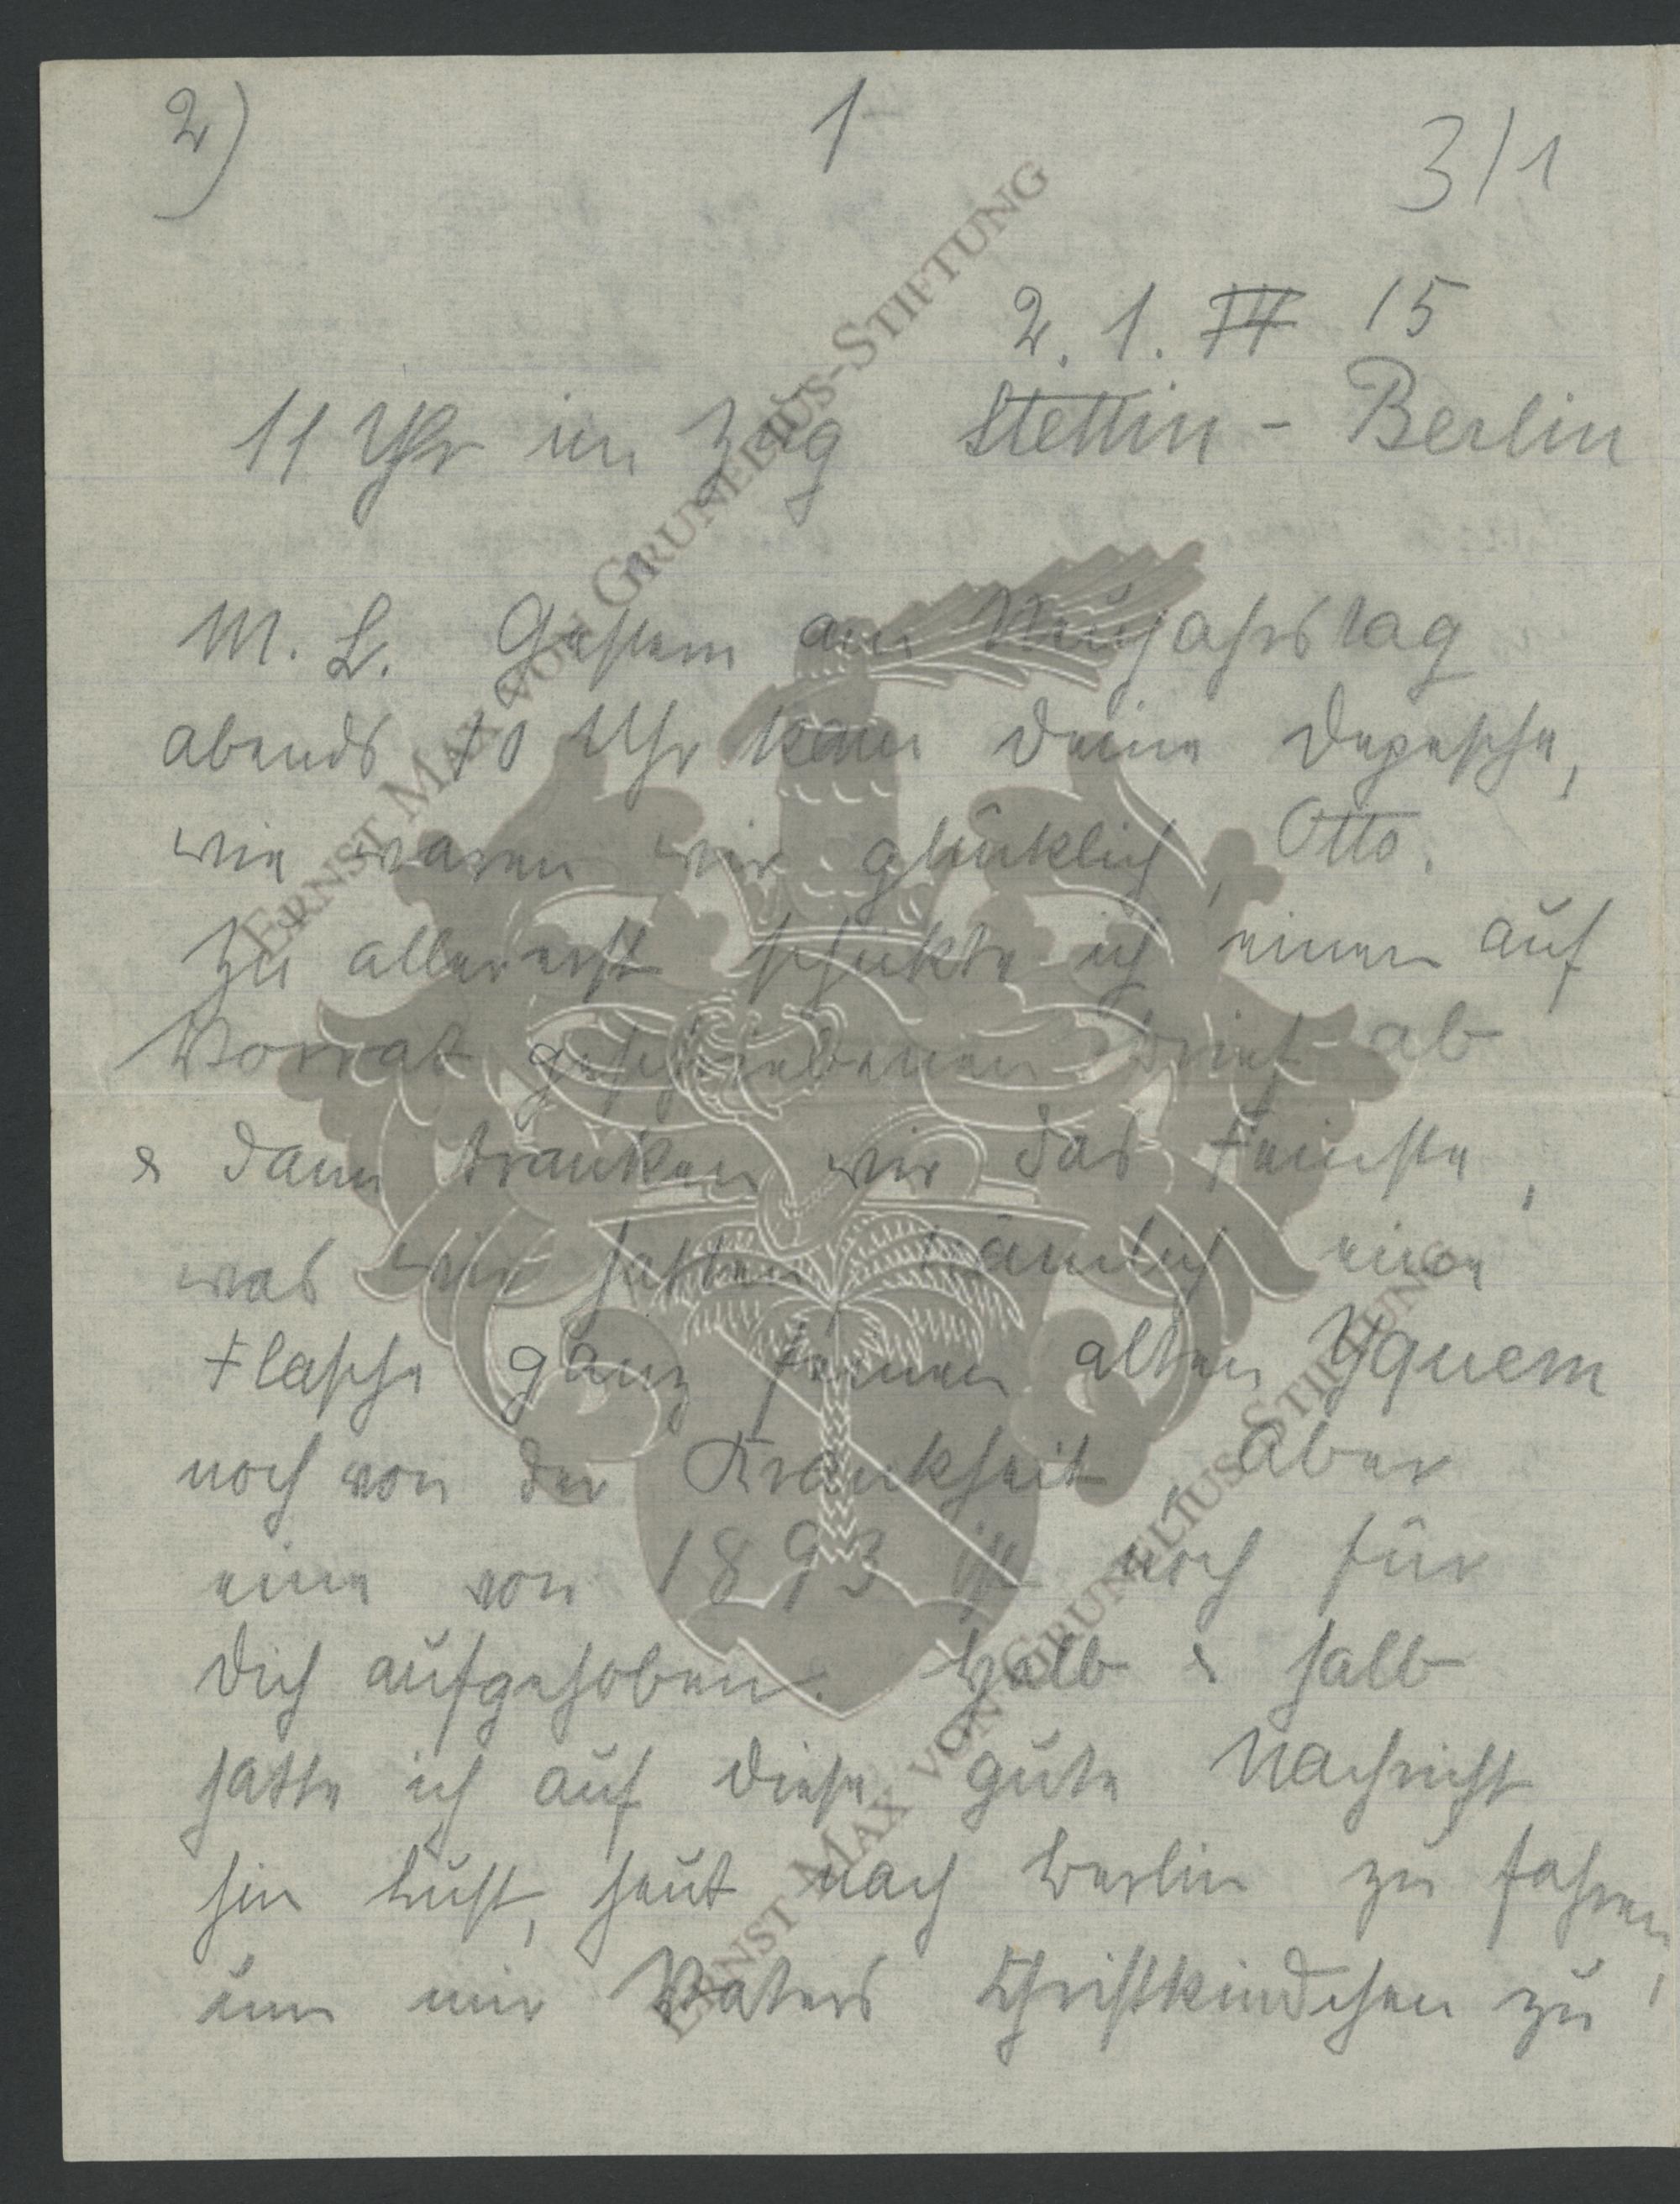 2) 1 3/1
2. 1. 14 15
11 Uhr im Zug Stettin - Berlin
M. L. Gestern am Neujahrstag
abends 10 Uhr kam deine Depesche,
wie waren wir glücklich, Otto.
Zu allererst schickte ich einen auf
Vorrat geschriebenen Brief ab
& dann tranken wir das Feinste,
was wir hatten, nämlich eine
Flasche ganz feinen alten Yquem
noch von der Krankheit, aber
eine von 1893 ist noch für
Dich aufgehoben. Halb & halb
hatte ich auf diese gute Nachricht
hin Lust, heut nach Berlin zu fahren,
um mir Vaters Christkindchen zu
ERNST MAX VON GRUNELIUS-STIFTUNG
ERNST MAX VON GRUNELIUS-STIFTUNG